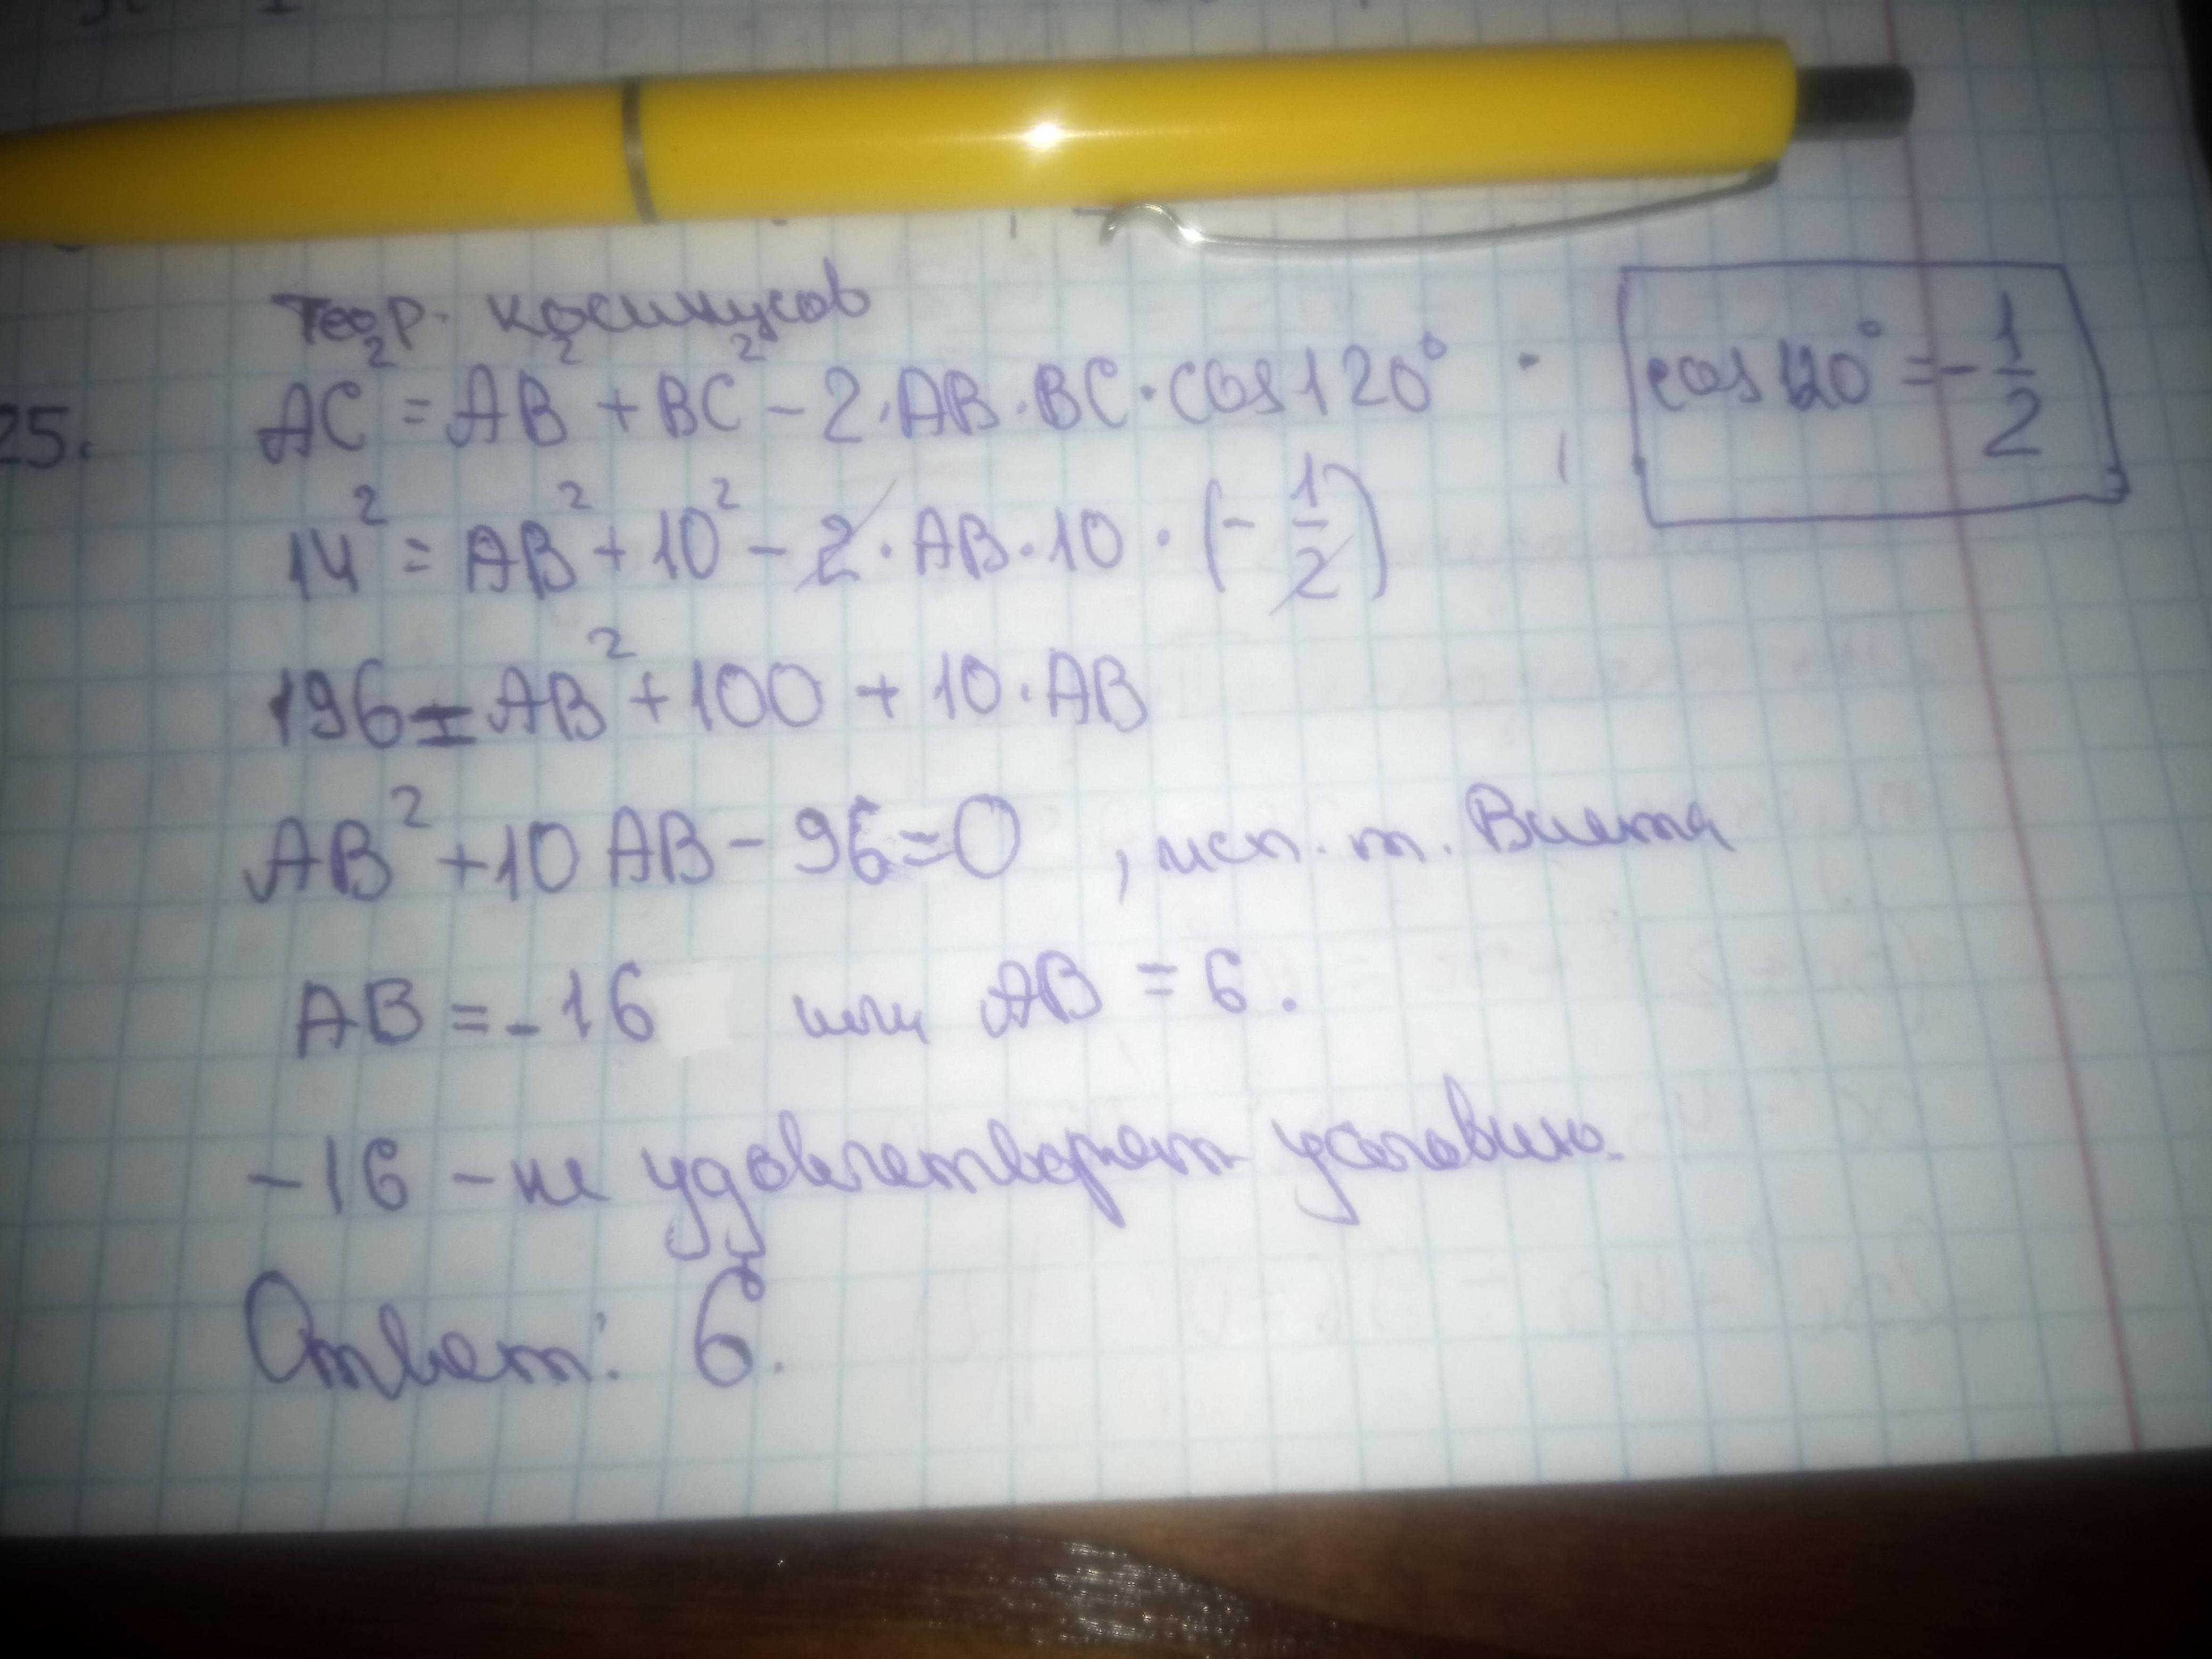 Теор. косинусов
25. AC² = AB² + BC² - 2·AB·BC·cos120°
cos120° = -1/2
14² = AB² + 10² - 2·AB·10·(-1/2)
196 = AB² + 100 + 10·AB
AB² + 10AB - 96 = 0, исп. т. Виета
AB = -16 или AB = 6.
-16 - не удовлетворяет условию.
Ответ: 6.